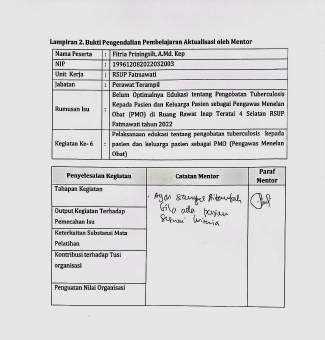 Lampiran 2. Bukti Pengendalian Pembelajaran Aktualisasi oleh Mentor
Nama Peserta : Fitria Priningsih, A.Md. Kep
NIP : 199612082022032003
Unit Kerja : RSUP Fatmawati
Jabatan : Perawat Terampil
Rumusan Isu : Belum Optimalnya Edukasi tentang Pengobatan Tuberculosis
Kepada Pasien dan Keluarga Pasien sebagai Pengawas Menelan
Obat (PMO) di Ruang Rawat Inap Teratai 4 Selatan RSUP
Fatmawati tahun 2022
Kegiatan Ke- 6 : Pelaksanaan edukasi tentang pengobatan tuberculosis kepada
pasien dan keluarga pasien sebagai PMO (Pengawas Menelan
Obat)
Penyelesaian Kegiatan Catatan Mentor Paraf Mentor
Tahapan Kegiatan
Agar sampel ditambah
bila ada pasien
sesuai kriteria
Output Kegiatan Terhadap
Pemecahan Isu
Keterkaitan Substansi Mata
Pelatihan
Kontribusi terhadap Tusi
organisasi
Penguatan Nilai Organisasi